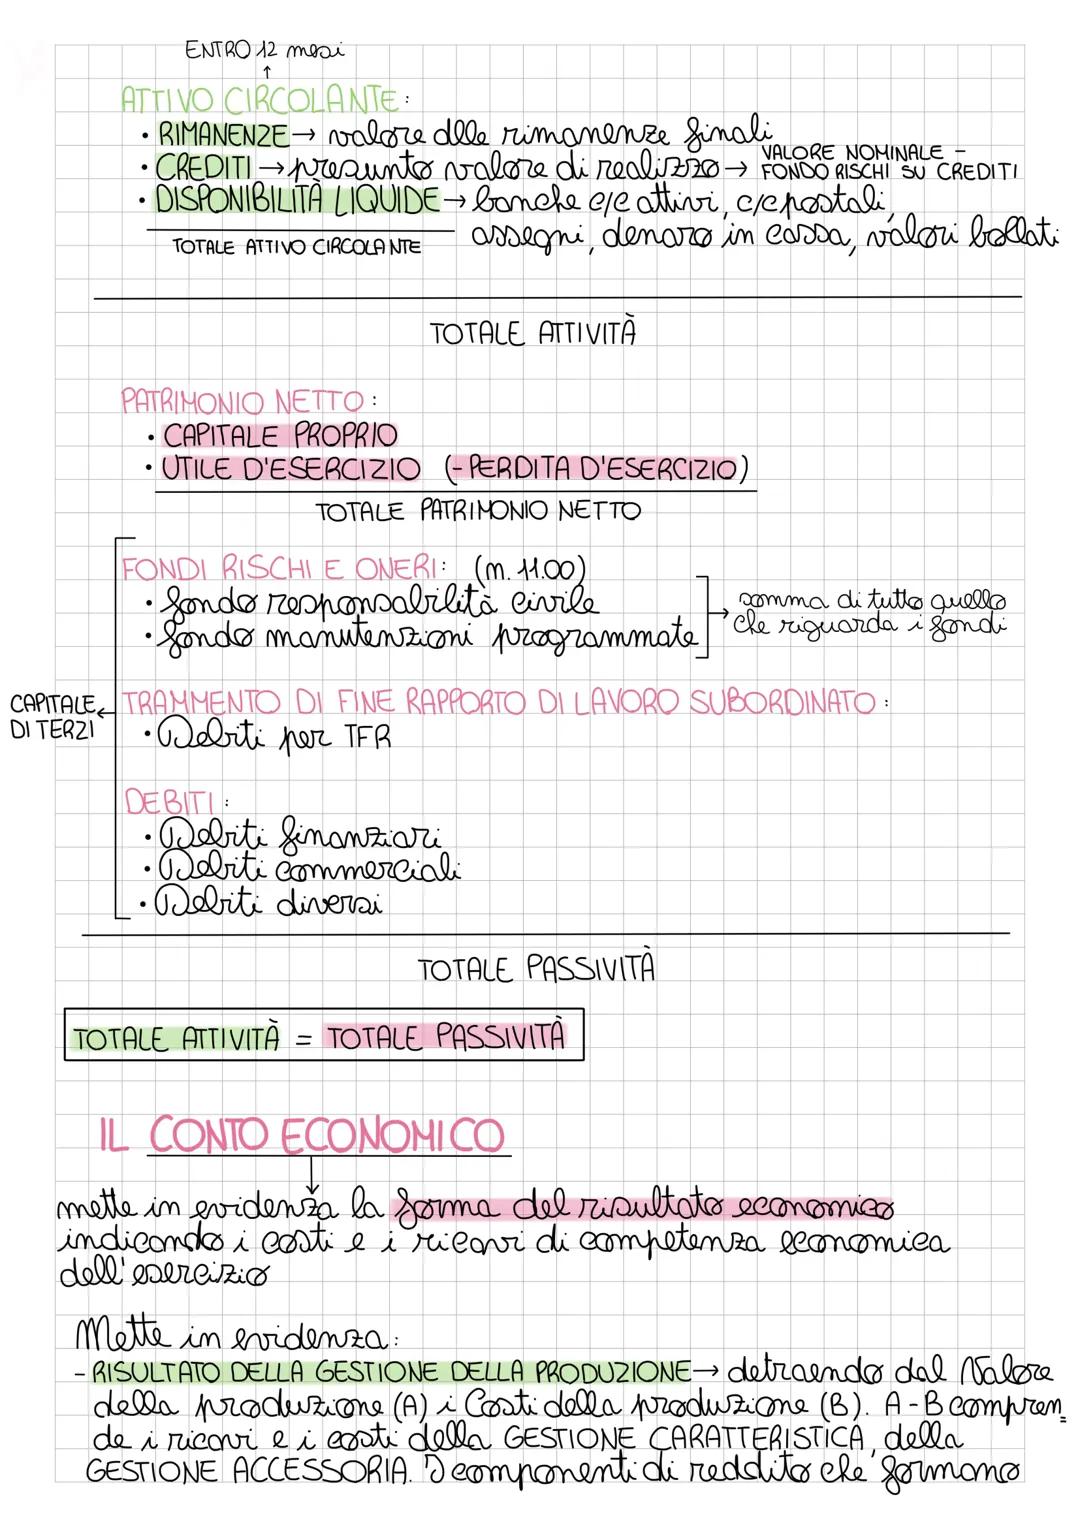 ENTRO 12 mesi
↑
ATTIVO CIRCOLANTE:
· RIMANENZE → valore dlle rimanenze finali
· CREDITI → presunto valore di realizzo → VALORE NOMINALE -
FONDO RISCHI SU CREDITI
· DISPONIBILITÀ LIQUIDE → banche c/c attivi, c/c postali,
assegni, denaro in cassa, valori bollati
TOTALE ATTIVO CIRCOLANTE
TOTALE ATTIVITÀ
PATRIMONIO NETTO:
· CAPITALE PROPRIO
· UTILE D'ESERCIZIO (-PERDITA D'ESERCIZIO)
TOTALE PATRIMONIO NETTO
FONDI RISCHI E ONERI: (m. 11.00)
· fondo responsabilità civile
· fondo manutenzioni programmate
→ somma di tutto quello
che riguarda i fondi
CAPITALE ←
DI TERZI
TRAMMENTO DI FINE RAPPORTO DI LAVORO SUBORDINATO:
· Debiti per TFR
DEBITI:
· Debiti finanziari
· Debiti commerciali
· Debiti diversi
TOTALE PASSIVITÀ
TOTALE ATTIVITÀ = TOTALE PASSIVITÀ
IL CONTO ECONOMICO
mette in evidenza la forma del risultato economico
indicando i costi e i ricavi di competenza economica
dell'esercizio
Mette in evidenza:
- RISULTATO DELLA GESTIONE DELLA PRODUZIONE → detraendo dal Valore
della produzione (A) i Costi della produzione (B). A-B compren=
de i ricavi e i costi della GESTIONE CARATTERISTICA, della
GESTIONE ACCESSORIA. I componenti di reddito che formano